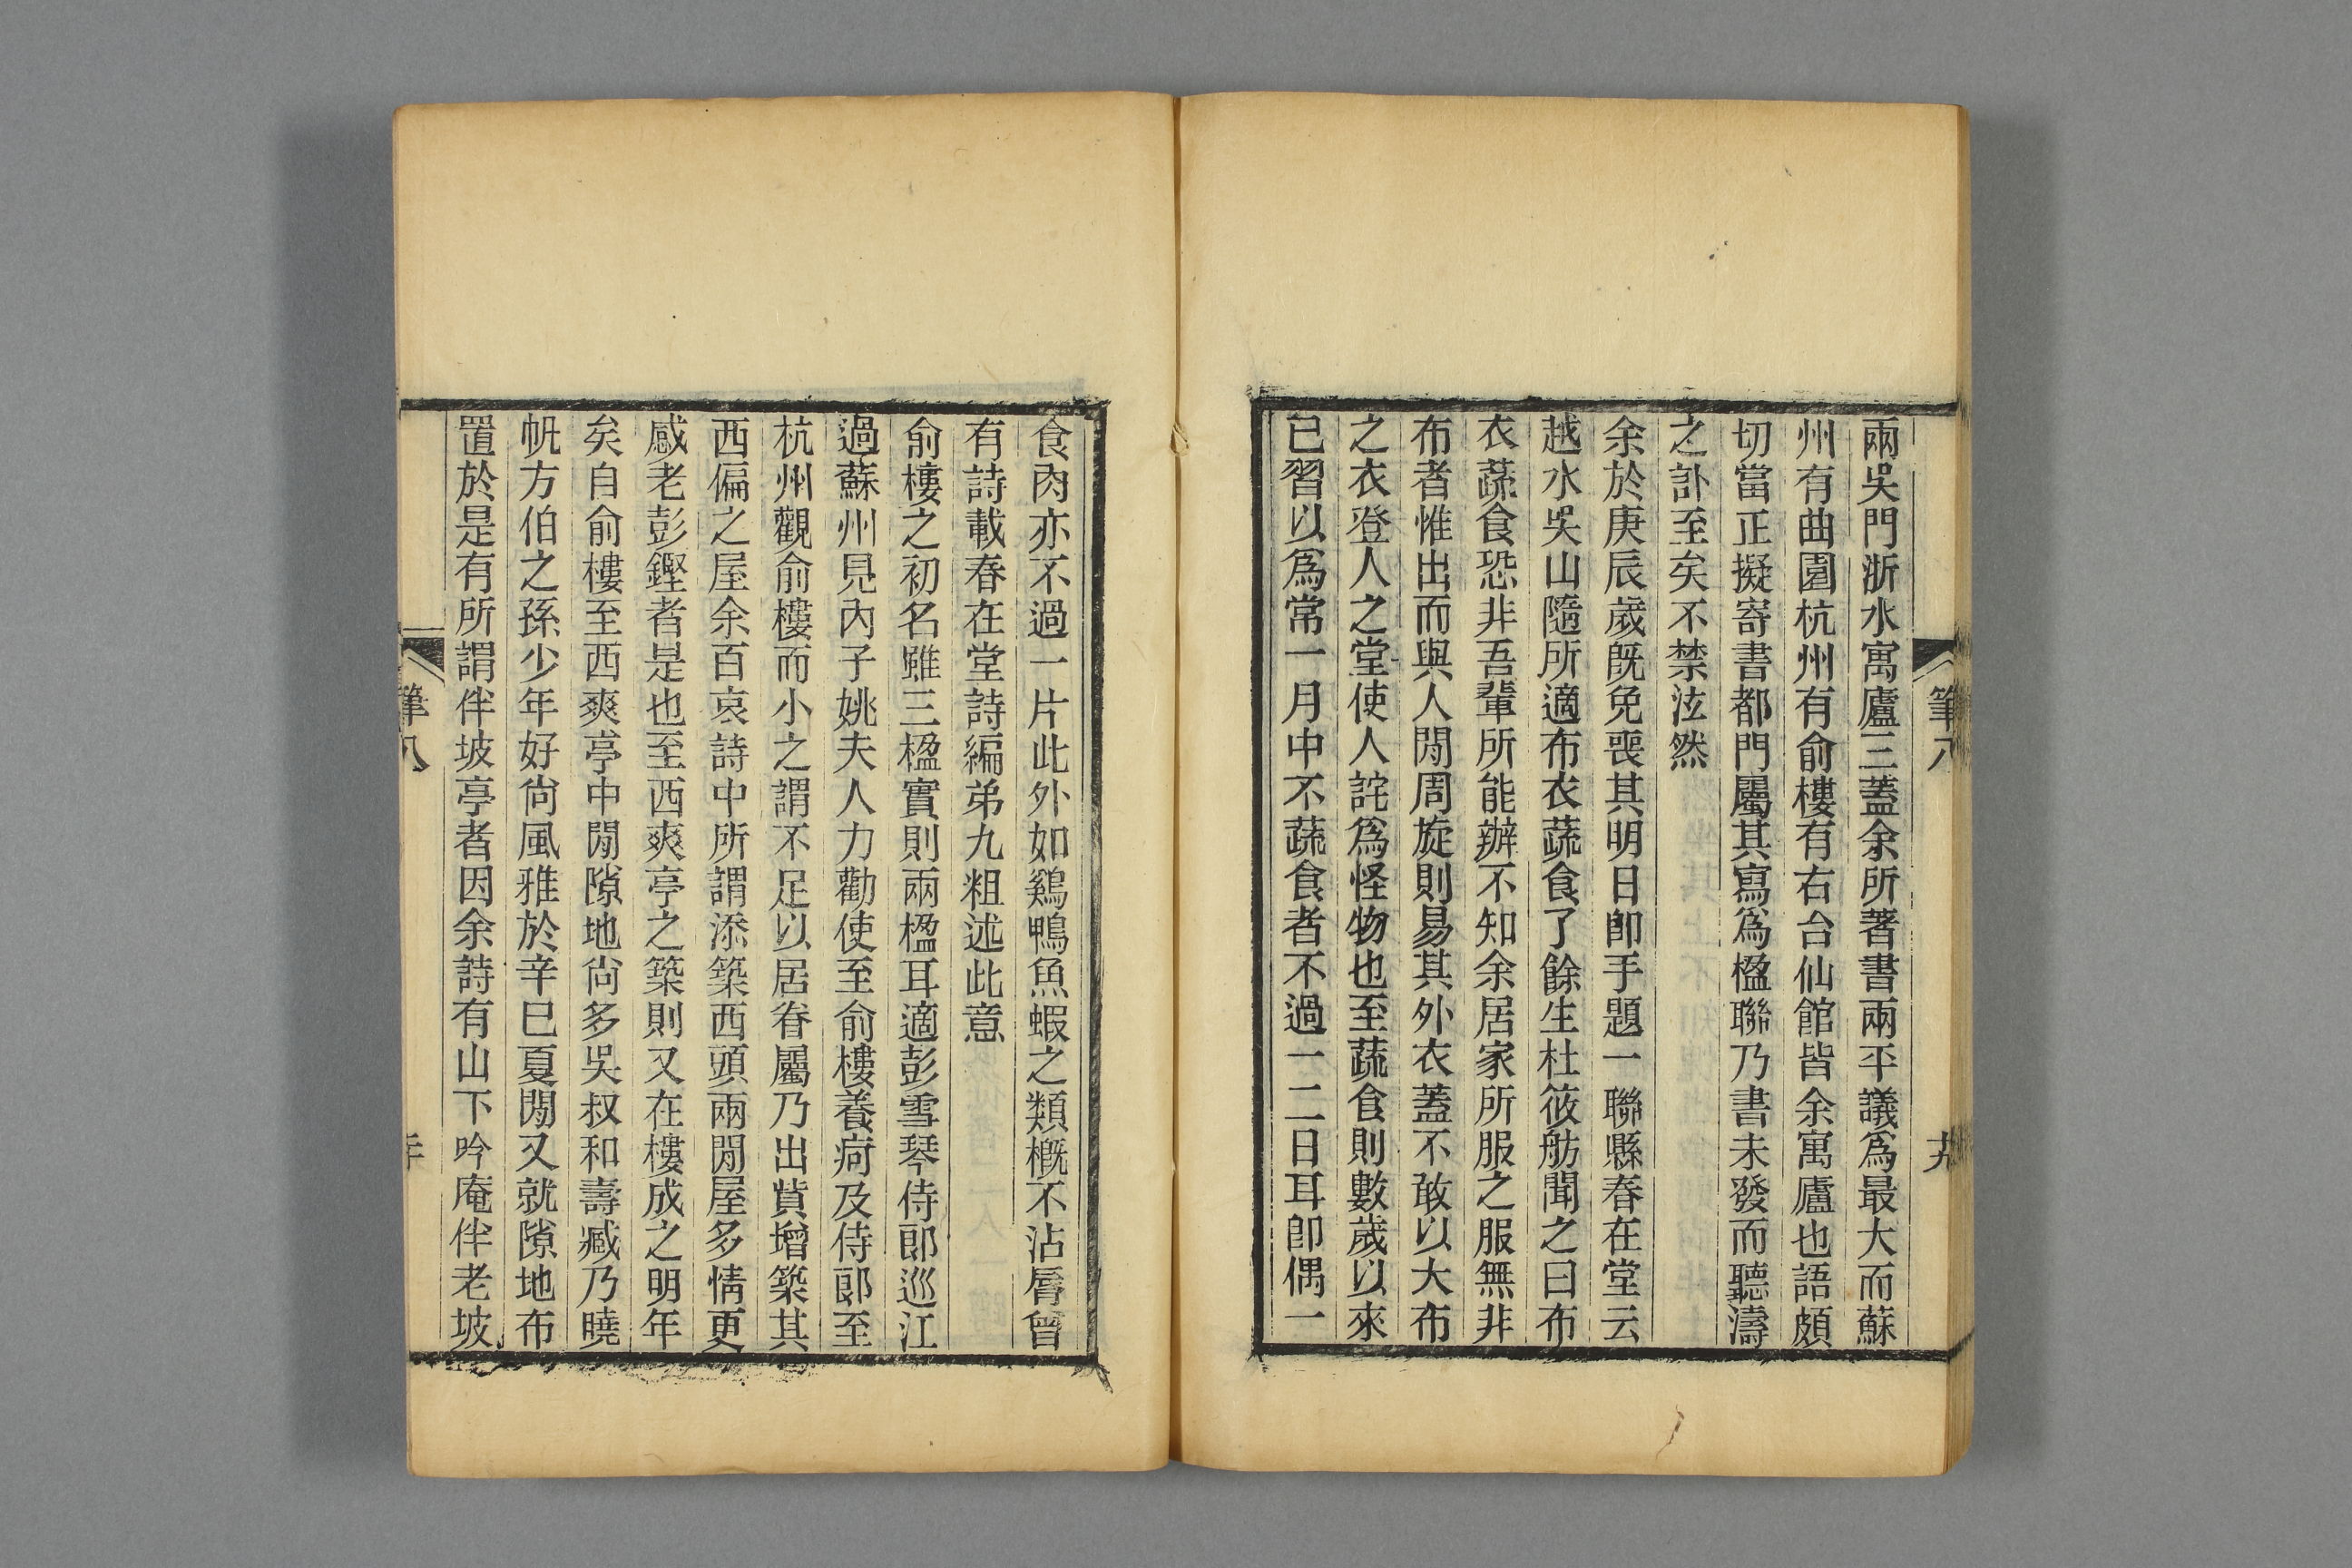 筆八
十九
兩吳門浙水寓廬三蓋余所著書兩平議爲最大而蘇
州有曲園杭州有俞樓有右台仙館皆余寓廬也語頗
切當正擬寄書都門屬其寫爲楹聯乃書未發而聽濤
之訃至矣不禁泫然
余於庚辰歲旣免喪其明日卽手題一聯縣春在堂云
越水吳山隨所適布衣蔬食了餘生杜筱舫聞之曰布
衣蔬食恐非吾輩所能辦不知余居家所服之服無非
布者惟出而與人閒周旋則易其外衣蓋不敢以大布
之衣登人之堂使人詫爲怪物也至蔬食則數歲以來
已習以爲常一月中不蔬食者不過一二日耳卽偶一
食肉亦不過一片此外如鷄鴨魚蝦之類槪不沾脣曾
有詩載春在堂詩編弟九粗述此意
俞樓之初名雖三楹實則兩楹耳適彭雪琴侍郞巡江
過蘇州見內子姚夫人力勸使至俞樓養疴及侍郞至
杭州觀俞樓而小之謂不足以居眷屬乃出貲增築其
西偏之屋余百哀詩中所謂添築西頭兩閒屋多情更
感老彭鏗者是也至西爽亭之築則又在樓成之明年
矣自俞樓至西爽亭中閒隙地尙多吳叔和壽臧乃曉
帆方伯之孫少年好尙風雅於辛巳夏閒又就隙地布
置於是有所謂伴坡亭者因余詩有山下吟庵伴老坡
筆八